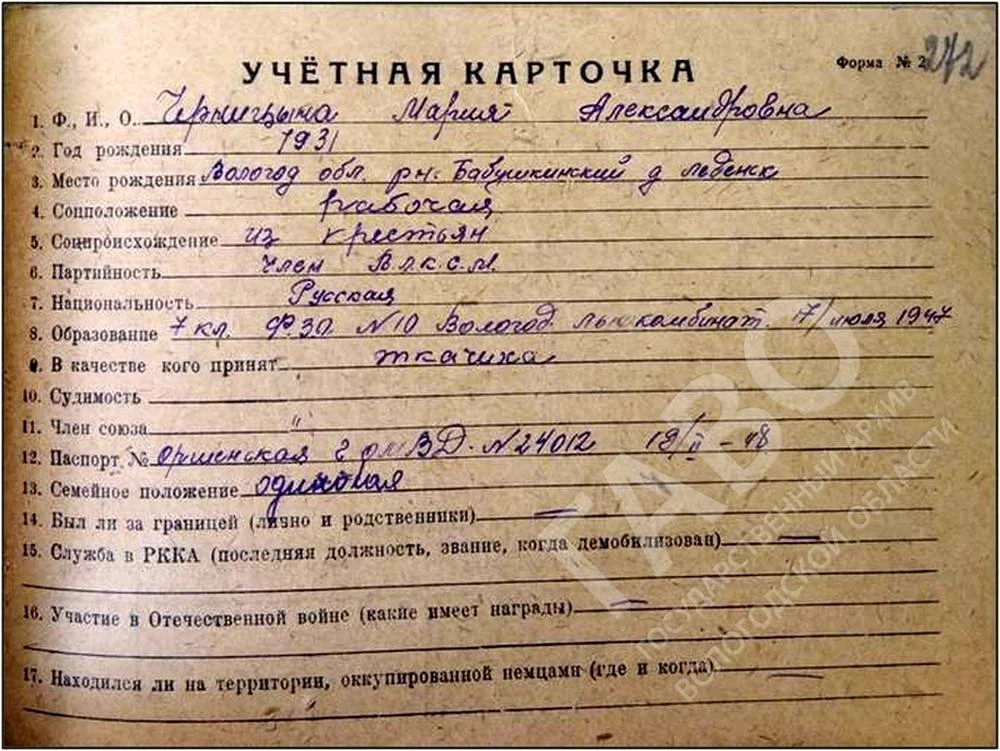 УЧЁТНАЯ КАРТОЧКА
Форма № 2
272
1. Ф., И., О. Черницына Мария Александровна
2. Год рождения 1931
3. Место рождения Вологод обл. рн. Бабушкинский д Леденск
4. Соцположение рабочая
5. Соцпроисхождение из крестьян
6. Партийность член В.л.к.с.м.
7. Национальность Русская
8. Образование 7 кл. ФЗО N10 Вологод. льнокомбинат. 17/июля, 1947
9. В качестве кого принят ткачиха
10. Судимость
11. Член союза "
12. Паспорт № N24012 18/II-48
13. Семейное положение одинокая
14. Был ли за границей (лично и родственники) —
15. Служба в РККА (последняя должность, звание, когда демобилизован) —
16. Участие в Отечественной войне (какие имеет награды) —
17. Находился ли на территории, оккупированной немцами (где и когда) —
ГАВО
ГОСУДАРСТВЕННЫЙ АРХИВ
ВОЛОГОДСКОЙ ОБЛАСТИ